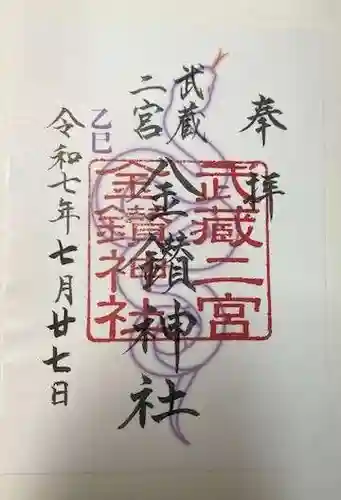 奉拝
武蔵
二宮
金鑚神社
乙巳
令和七年七月廿七日
武蔵二宮
金鑚神社